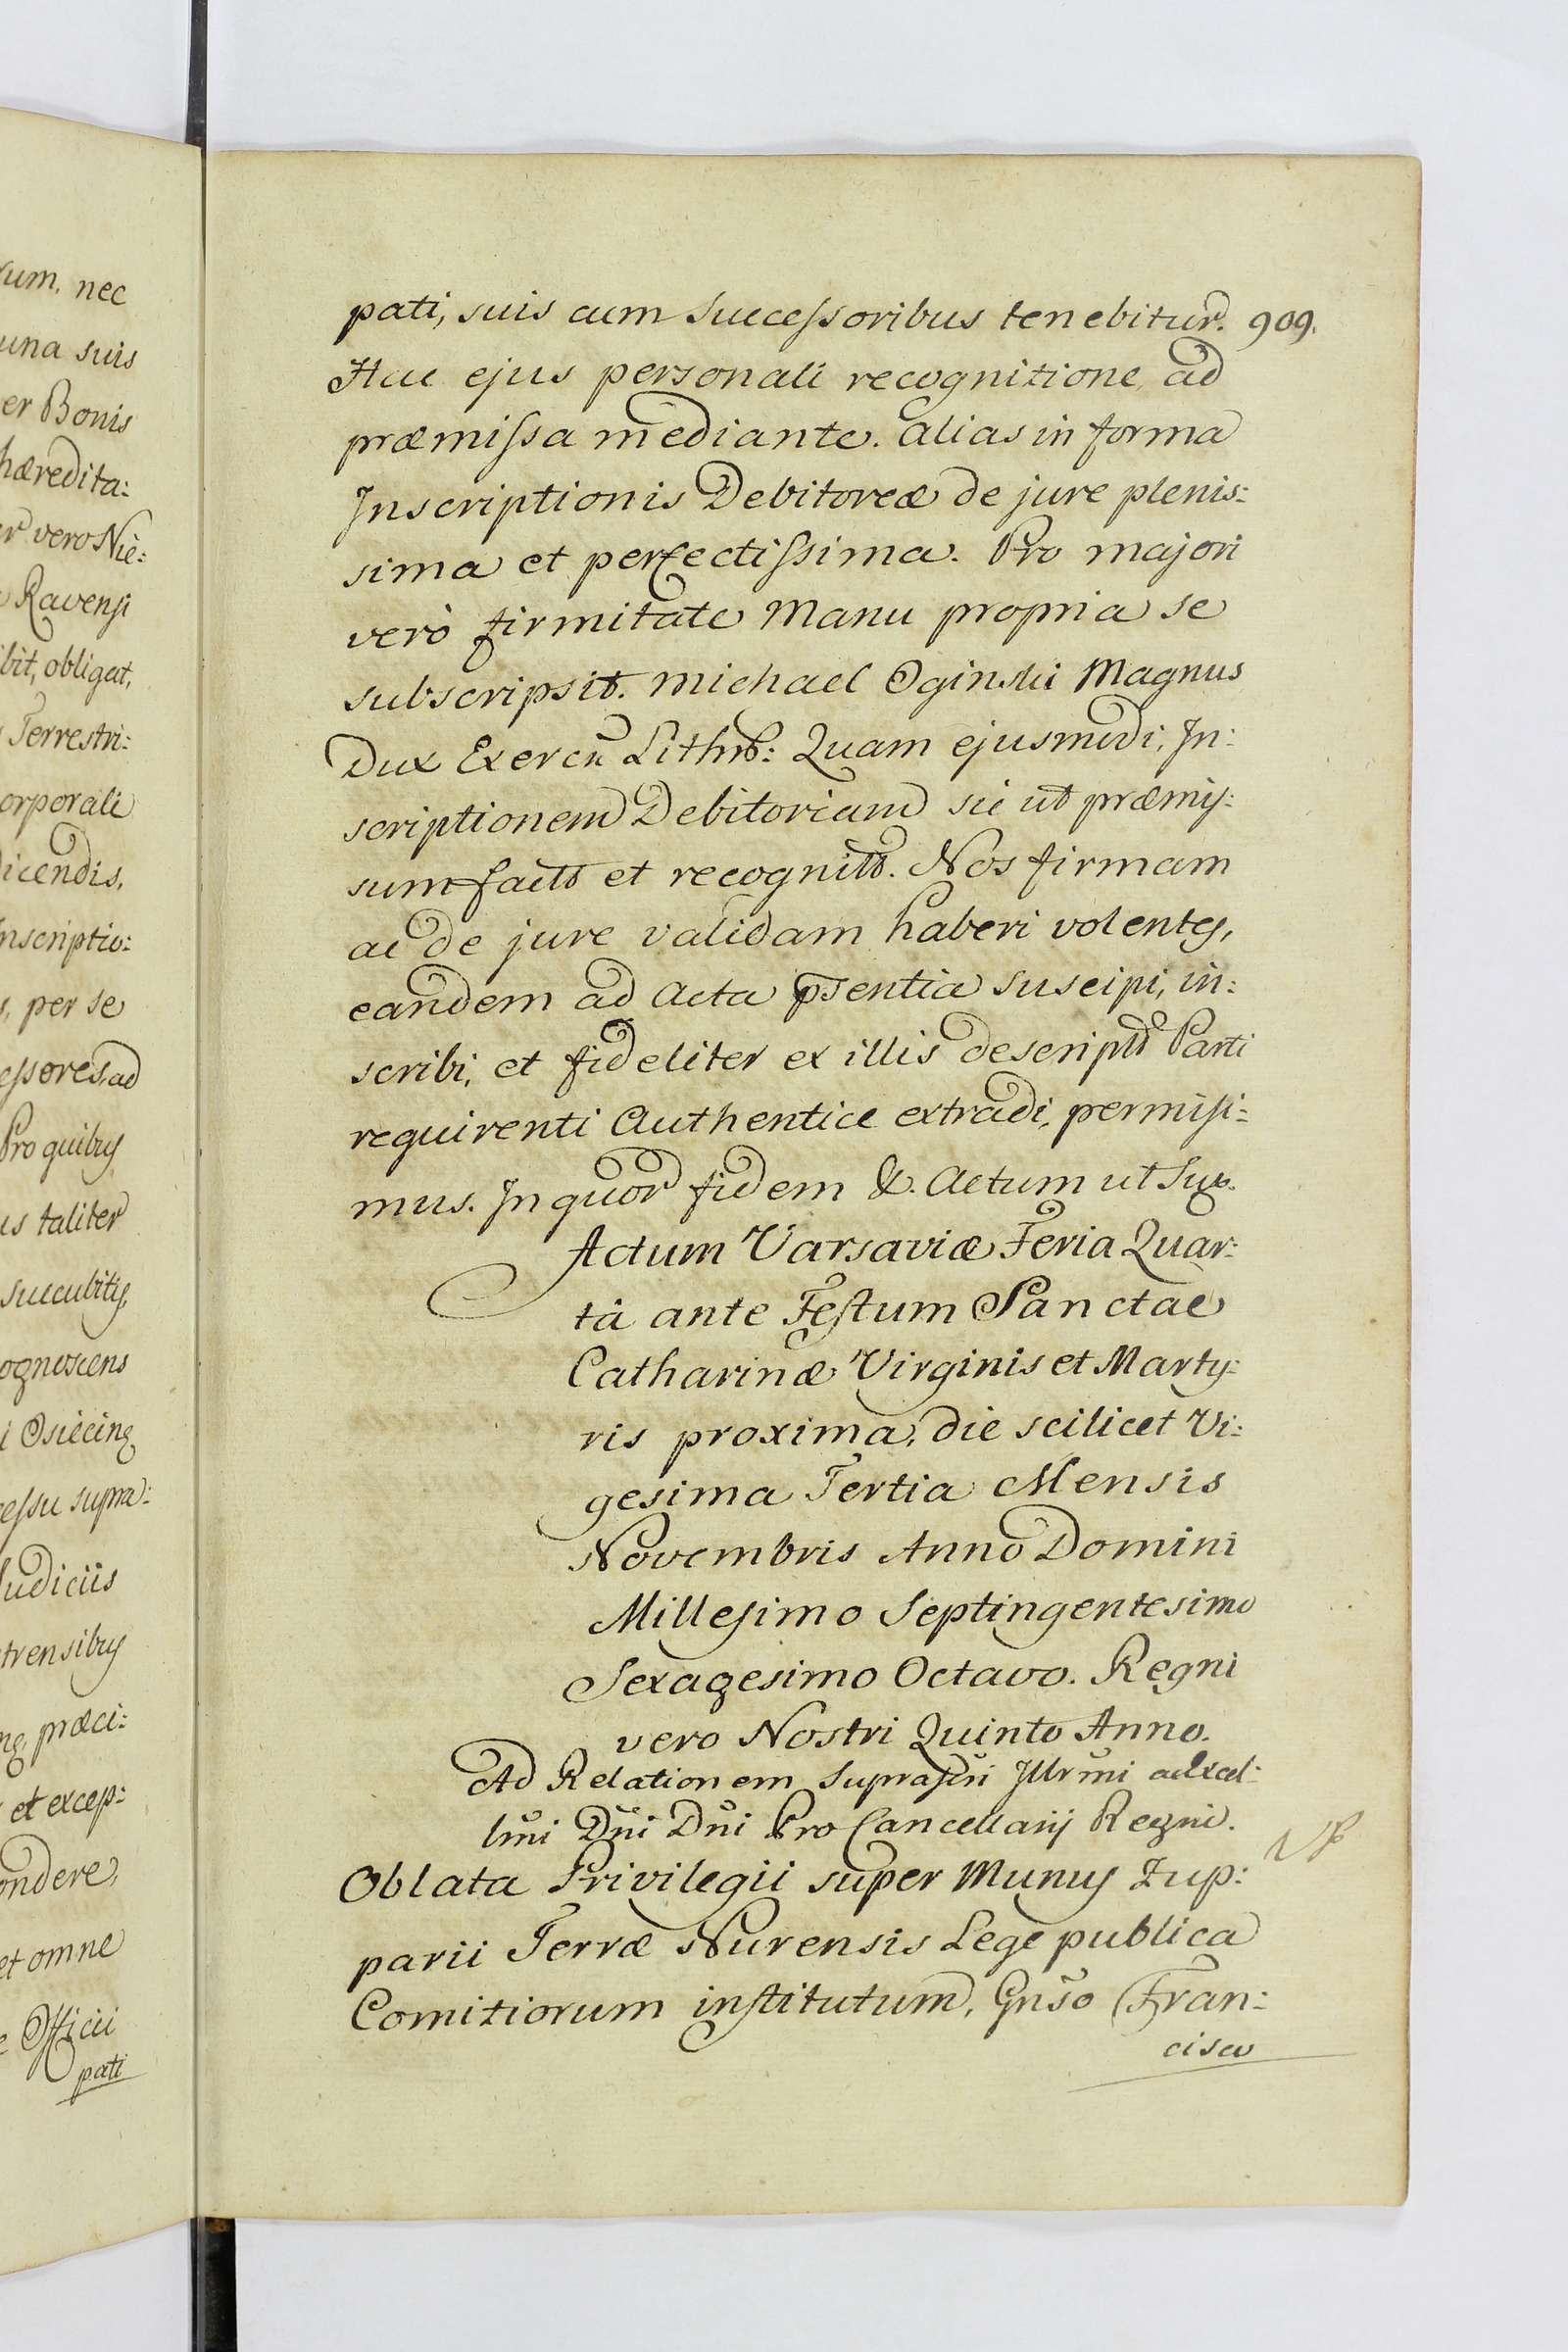 rum, nec
una suis
er Bonis
hæredita:
er vero Nie:
Ravensi
ibit, obligat,
Terrestri:
orporali
dicendis,
nscriptio:
s, per se
essores, ad
Pro quibus
us taliter
succubitis,
ognoscens
i Osiecing
cessu supra:
Judiciis
trensibus
ng, præci:
et excep:
ondere,
et omne
e Officii
pati
909.
pati, suis cum Successoribus tenebitur.
Hac ejus personali recognitione ad
præmissa mediante. alias in forma
Inscriptionis Debitoreæ de jure plenis:
sima et perfectissima. Pro majori
verò firmitate Manu propria se
subscripsit. Michael Oginski Magnus
Dux Exercũ Lithv̄: Quam ejusmodi, In:
scriptionem Debitoriam sic ut præmis:
sum fact̄ et recognit̄. Nos firmam
ac de jure validam haberi volentes,
eandem ad acta p̄sentia suscipi, in:
scribi, et fideliter ex illis descript̄ Parti
requirenti Authentice extradi, permisi:
mus. In quor̄ fidem &. Actum ut Sup.
Actum Varsaviæ Feria Quar:
ta ante Festum Sanctae
Catharinæ Virginis et Marty:
ris proxima, die scilicet Vi:
gesima Tertia Mensis
Novembris Anno Domini
Millesimo Septingentesimo
Sexagesimo Octavo. Regni
vero Nostri Quinto Anno.
Ad Relationem Suprascr̃i Jllrmi acExcel:
lm̃i Dñi Dñi Pro Cancellarij Regni.
Oblata Privilegii super Munus Zup:
parii Terræ Nurensis Lege publica
Comitiorum institutum, Gñso Fran:
cisco